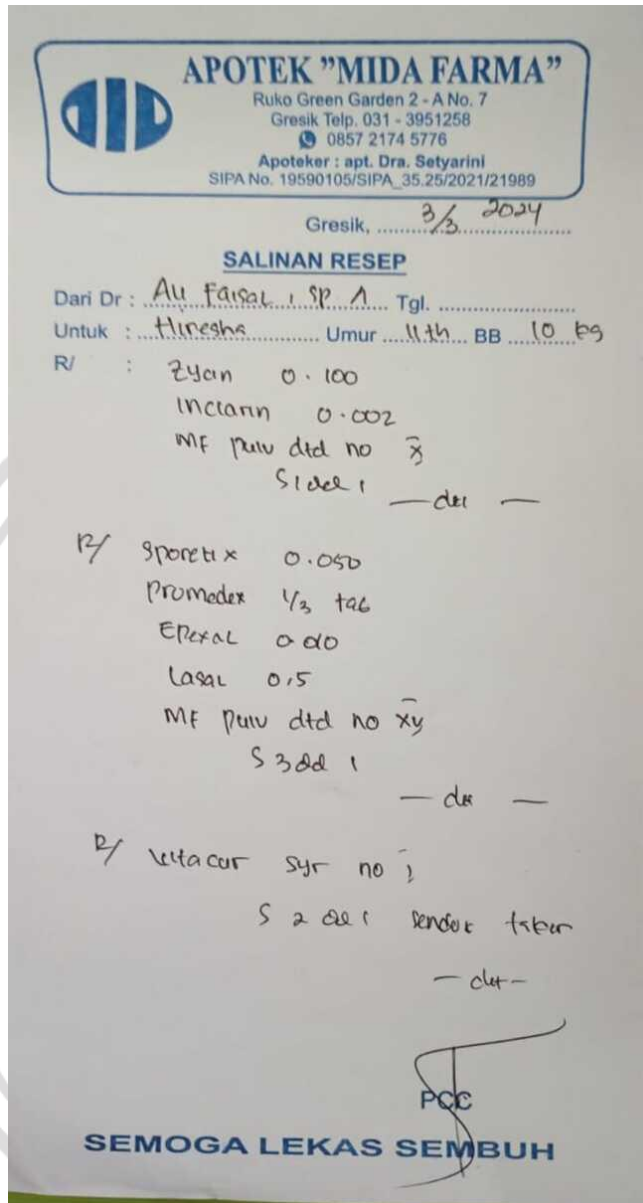 APOTEK "MIDA FARMA"
Ruko Green Garden 2 - A No. 7
Gresik Telp. 031 - 3951258
0857 2174 5776
Apoteker : apt. Dra. Setyarini
SIPA No. 19590105/SIPA_35.25/2021/21989
Gresik, 3/3 2024
SALINAN RESEP
Dari Dr : Faisal, Sp A Tgl.
Untuk : Hinesha Umur 11 th BB 10 kg
R/ : Zycin 0.100
0.002
MF pulv dtd no x
S1dd1
— det —
R/ Sporetix 0.050
Promedex 1/3 tab
Epexol 0.010
Lasal 0,5
MF pulv dtd no xv
S 3dd 1
— det —
R/ syr no i
S 2 dd 1 sendok takar
— det —
PCC
SEMOGA LEKAS SEMBUH